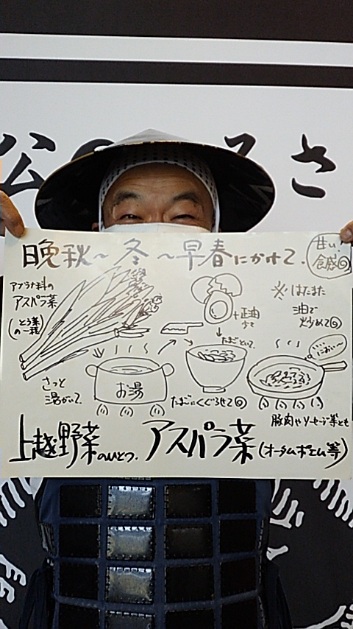 公の
るさ
晩秋～冬～早春にかけて、
甘い！
食感◎
アブラナ科の
アスパラ菜
（とう菜の一種）
＋正油
少々
※はたまた
油で
炒めて◎
たまごといて
さっと
湯がいて
お湯
たまごにくぐらせて◎
豚肉やソーセージ等とも
上越野菜のひとつ、アスパラ菜（オータムポエム等）